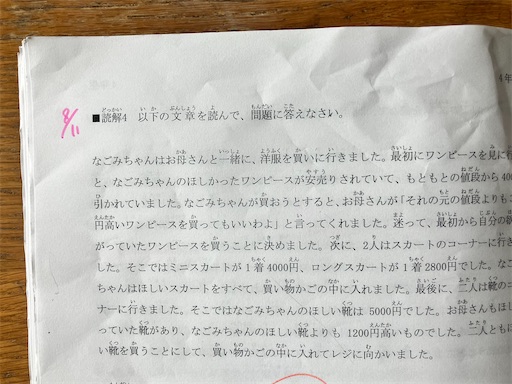 4年
8/11
■読解4 以下の文章を読んで、問題に答えなさい。
なごみちゃんはお母さんと一緒に、洋服を買いに行きました。最初にワンピースを見に行
と、なごみちゃんのほしかったワンピースが安売りされていて、もともとの値段から400
引かれていました。なごみちゃんが買おうとすると、お母さんが「それの元の値段よりも
円高いワンピースを買ってもいいわよ」と言ってくれました。迷って、最初から自分の
がっていたワンピースを買うことに決めました。次に、2人はスカートのコーナーに行き
した。そこではミニスカートが1着4000円、ロングスカートが1着2800円でした。なご
ちゃんはほしいスカートをすべて、買い物かごの中に入れました。最後に、二人は靴のコ
ナーに行きました。そこではなごみちゃんのほしい靴は5000円でした。お母さんもほ
っていた靴があり、なごみちゃんのほしい靴よりも1200円高いものでした。二人とも
い靴を買うことにして、買い物かごの中に入れてレジに向かいました。